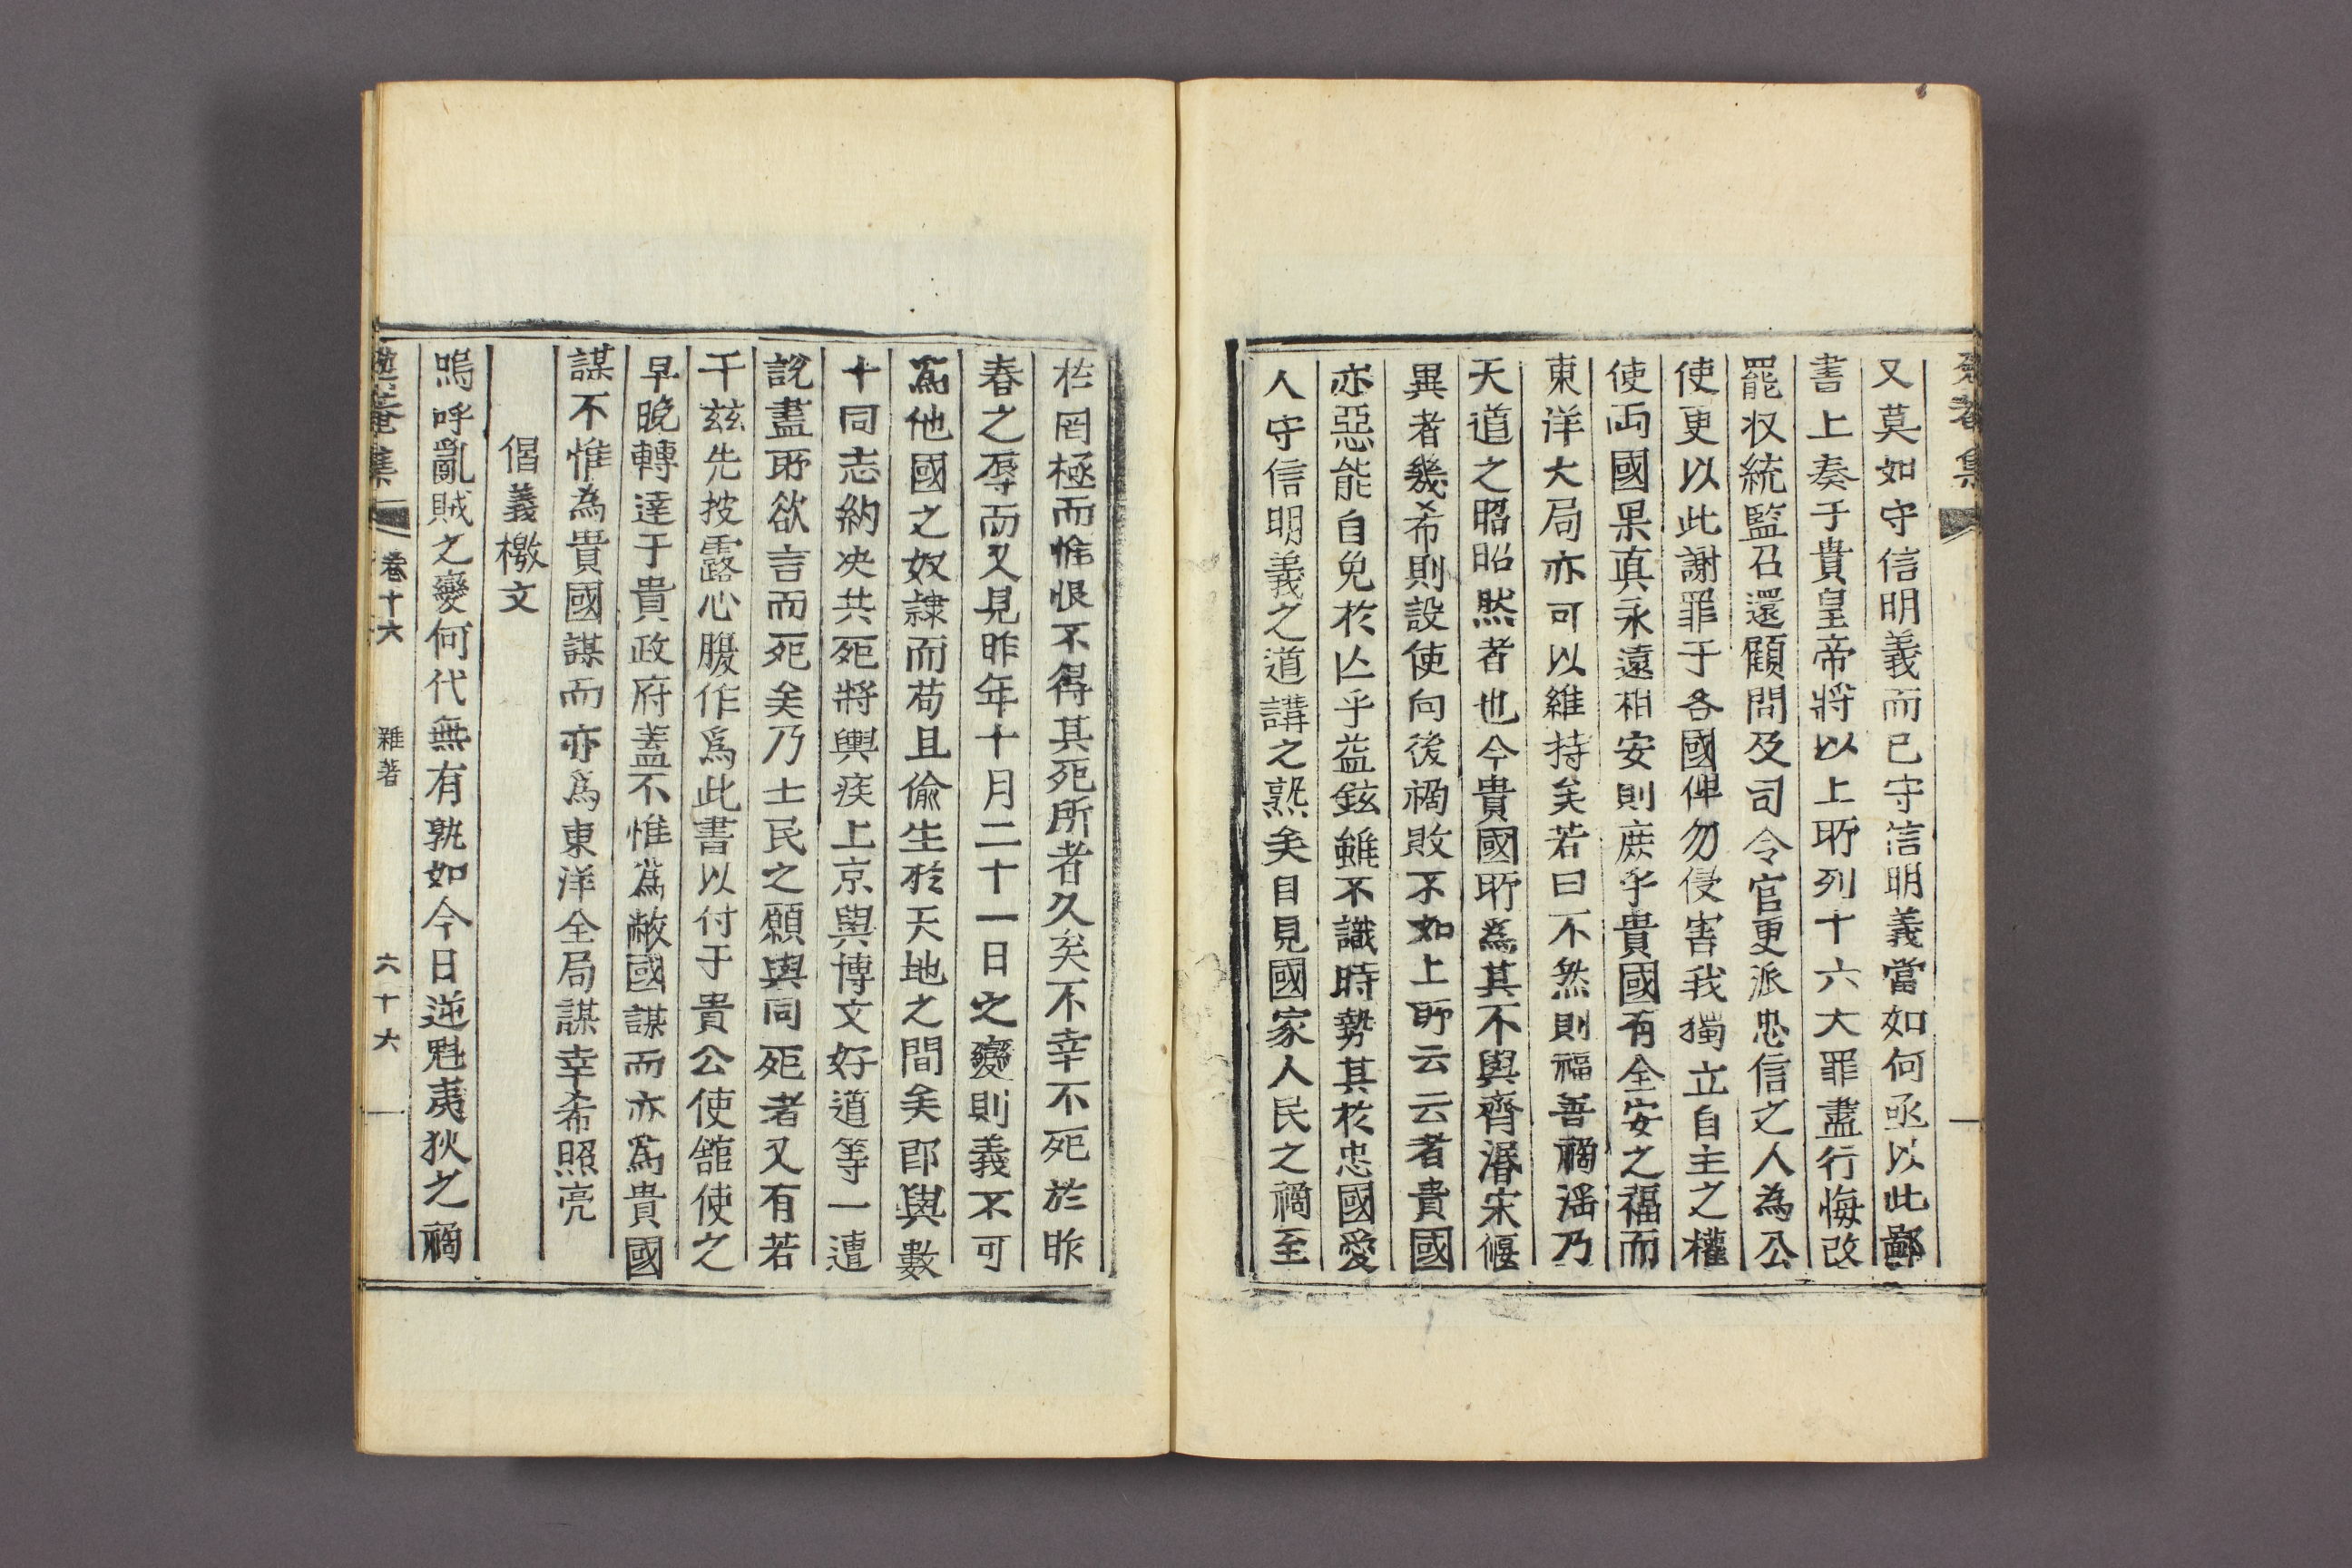 又莫如守信明義而已守信明義當如何亟以此鄙
書上奏于貴皇帝將以上所列十六大罪盡行悔改
罷収統監召還顧問及司令官更派忠信之人為公
使更以此謝罪于各國俾勿侵害我獨立自主之權
使両國果真永遠相安則庶乎貴國有全安之福而
東洋大局亦可以維持矣若曰不然則福善禍滛乃
天道之昭昭然者也今貴國所爲其不與齊湣宋偃
異者幾希則設使向後禍敗不如上所云云者貴國
亦惡能自免於亾乎益鉉雖不識時勢其於忠國愛
人守信明義之道講之熟矣目見國家人民之禍至
於罔極而惟恨不得其死所者久矣不幸不死於昨
春之辱而又見昨年十月二十一日之變則義不可
爲他國之奴隷而苟且偷生於天地之間矣卽與數
十同志約决共死將輿疾上京與博文好道等一遭
說盡所欲言而死矣乃士民之願與同死者又有若
千玆先披露心腹作爲此書以付于貴公使舘使之
早晚轉達于貴政府蓋不惟爲敝國謀而亦爲貴國
謀不惟為貴國謀而亦爲東洋全局謀幸希照亮
倡義檄文
嗚呼亂賊之變何代無有孰如今日逆魁夷狄之禍
菴集
卷十六
雜著
六十六